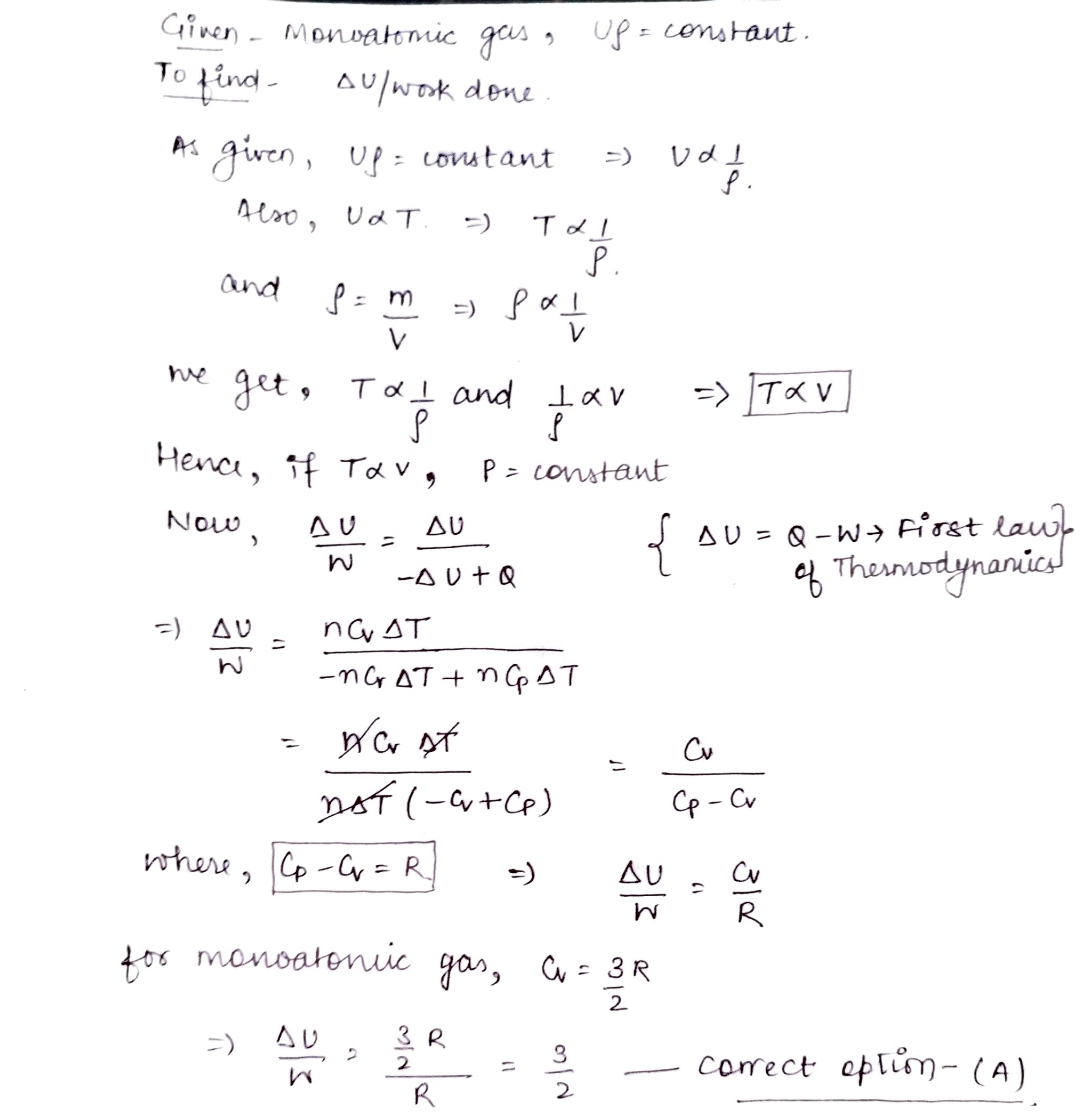 Given - Monoatomic gas, Uρ = constant.
To find - ΔU/work done.
As given, Uρ = constant => U α 1/ρ.
Also, U α T. => T α 1/ρ.
and ρ = m/V => ρ α 1/V
we get, T α 1/ρ and 1/ρ α V => T α V
Hence, if T α V, P = constant
Now, ΔU/W = ΔU/(-ΔU + Q) { ΔU = Q - W → First law of Thermodynamics}
=> ΔU/W = nCv ΔT/(-nCv ΔT + nCp ΔT)
= nCv ΔT/(nΔT (-Cv + Cp)) = Cv/(Cp - Cv)
where, Cp - Cv = R => ΔU/W = Cv/R
for monoatomic gas, Cv = 3/2 R
=> ΔU/W = (3/2 R)/R = 3/2 — correct option - (A)